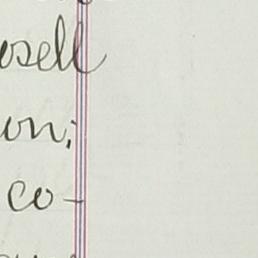 osell
on;
co-